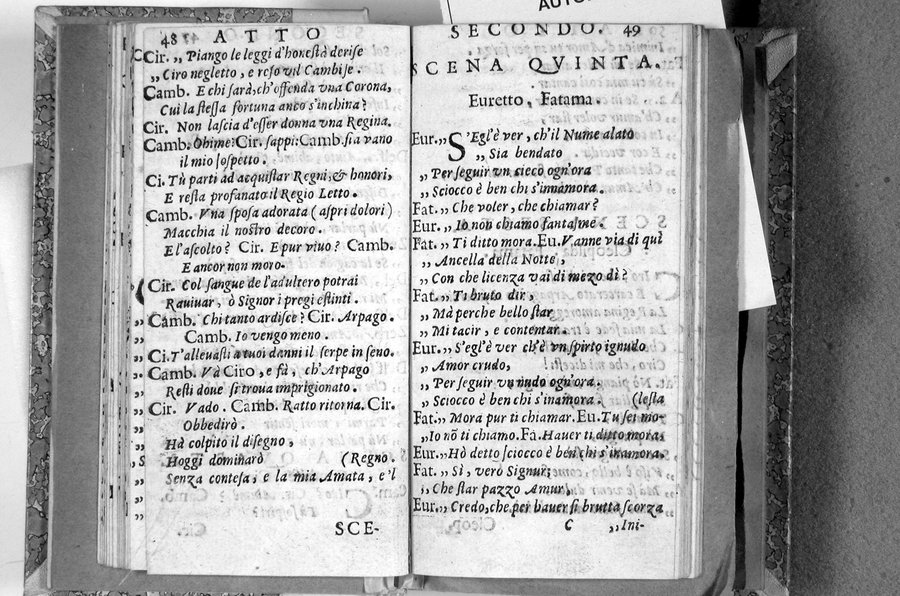 AUTO
48 ATTO
Cir. „ Piango le leggi d'honestà derise
„ Ciro negletto, e reso vil Cambise.
Camb. E chi sarà, ch'offenda vna Corona,
Cui la stessa fortuna anco s'inchina?
Cir. Non lascia d'esser donna vna Regina.
Camb. Ohime: Cir. sappi: Camb. sia vano
il mio sospetto.
Ci. Tù parti ad acquistar Regni, & honori,
E resta profanato il Regio Letto.
Camb. Vna sposa adorata (aspri dolori)
Macchia il nostro decoro.
E l'ascolto? Cir. E pur viuo? Camb.
E ancor non moro.
Cir. Col sangue de l'adultero potrai
Rauiuar, ò Signor i pregi estinti.
Camb. Chi tanto ardisce? Cir. Arpago.
Camb. Io vengo meno.
Ci. T'alleuasti a tuoi danni il serpe in seno.
Camb. Và Ciro, e fà, ch'Arpago
Resti doue si troua imprigionato.
Cir. Vado. Camb. Ratto ritorna. Cir.
Obbedirò.
Hà colpito il disegno,
Hoggi dominarò (Regno.
Senza contesa, e la mia Amata, e'l
SCE-
SECONDO. 49
SCENA QVINTA.
Euretto, Fatama.
Eur. „ S'Egl'è ver, ch'il Nume alato
„ Sia bendato
„ Per seguir vn cieco ogn'ora
„ Sciocco è ben chi s'innamora.
Fat. „ Che voler, che chiamar?
Eur. „ Io non chiamo fantasme.
Fat. „ Ti ditto mora. Eu. Vanne via di quì
„ Ancella della Notte,
„ Con che licenza vai di mezo dì?
Fat. „ Ti bruto dir,
„ Mà perche bello star
„ Mi tacir, e contentar.
Eur. „ S'egl'è ver ch'è vn spirto ignudo
„ Amor crudo,
„ Per seguir vn nudo ogn'ora.
„ Sciocco è ben chi s'inamora. (lesta
Fat. „ Mora pur ti chiamar. Eu. Tu sei mo-
„ Io nõ ti chiamo. Fa. Hauer ti ditto mora.
Eur. „ Hò detto sciocco è ben chi s'inamora.
Fat. „ Sì, verò Signur;
„ Che star pazzo Amur,
Eur. „ Credo, che per hauer sì brutta scorza
C „ Ini-